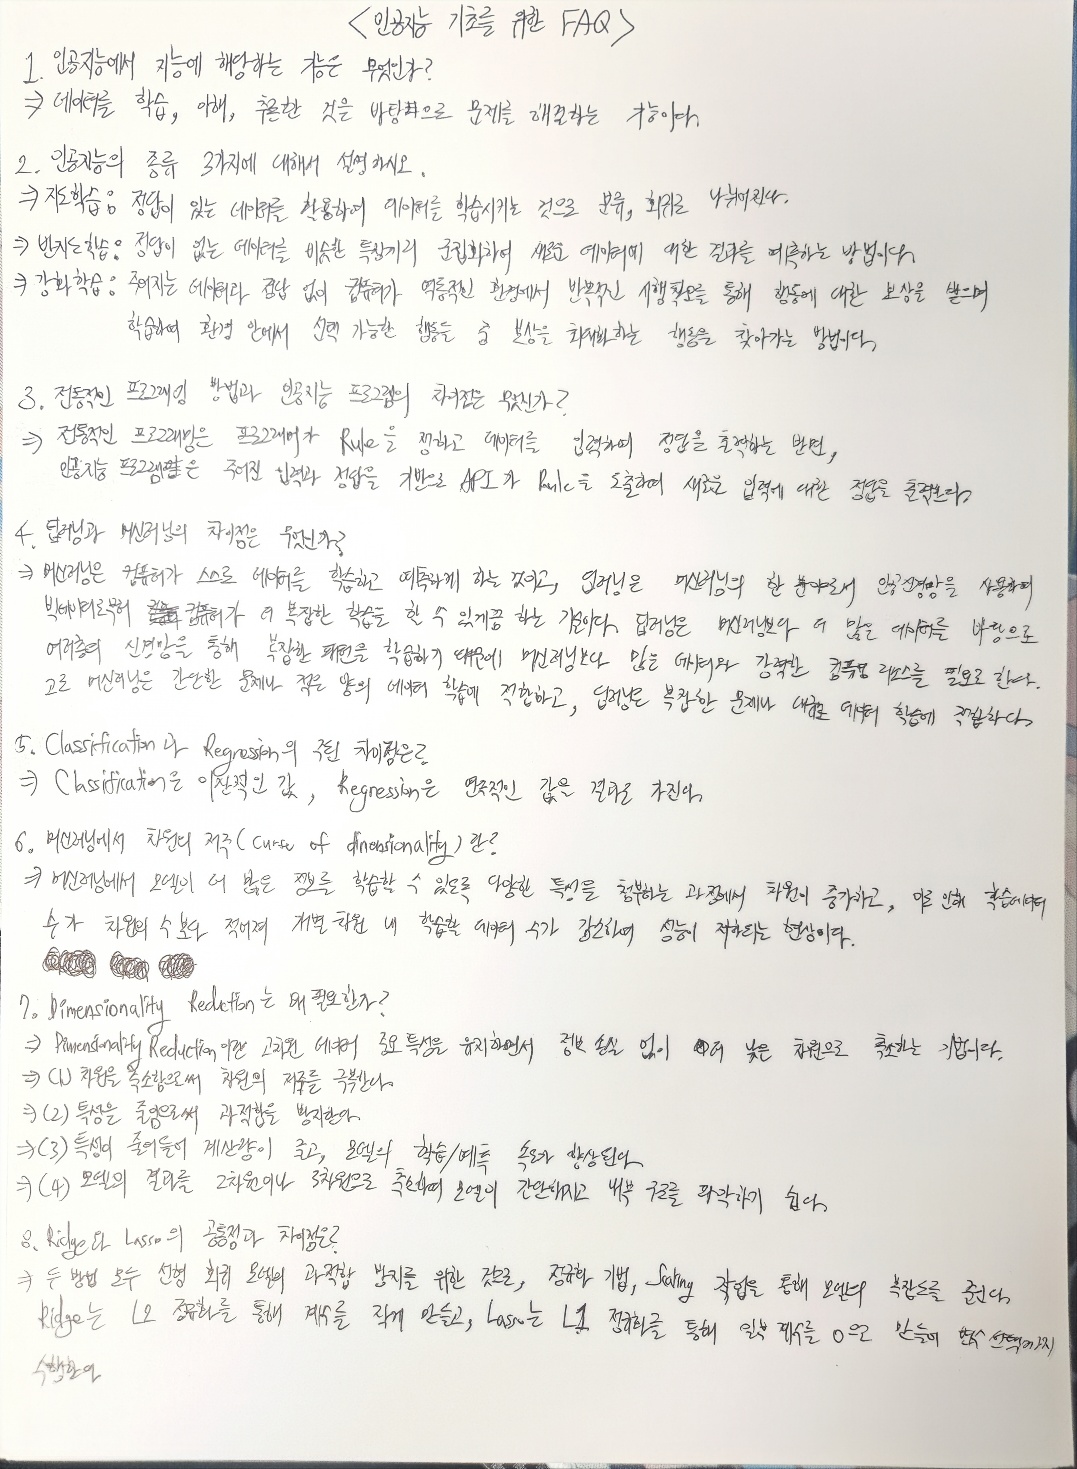 <인공지능 기초를 위한 FAQ>
1. 인공지능에서 지능에 해당하는 기능은 무엇인가?
⇒ 데이터를 학습, 이해, 추론한 것을 바탕으로 문제를 해결하는 기능이다.
2. 인공지능의 종류 3가지에 대해서 설명하시오.
⇒ 지도학습: 정답이 있는 데이터를 활용하여 데이터를 학습시키는 것으로 분류, 회귀로 나뉘어진다.
⇒ 반지도학습: 정답이 없는 데이터를 비슷한 특징끼리 군집화하여 새로운 데이터에 대한 결과를 예측하는 방법이다.
⇒ 강화학습: 주어지는 데이터과 정답 없이 컴퓨터가 역동적인 환경에서 반복적인 시행착오를 통해 행동에 대한 보상을 받으며
학습하여 환경 안에서 선택 가능한 행동들 중 보상을 최대화하는 행동을 찾아가는 방법이다.
3. 전통적인 프로그래밍 방법과 인공지능 프로그램의 차이점은 무엇인가?
⇒ 전통적인 프로그래밍은 프로그래머가 Rule을 정하고 데이터를 입력하여 정답을 출력하는 반면,
인공지능 프로그램은 주어진 입력과 정답을 기반으로 API가 Rule을 도출하여 새로운 입력에 대한 정답을 출력한다.
4. 딥러닝과 머신러닝의 차이점은 무엇인가?
⇒ 머신러닝은 컴퓨터가 스스로 데이터를 학습하고 예측하게 하는 것이고, 딥러닝은 머신러닝의 한 분야로서 인공신경망을 사용하여
빅데이터로부터 컴퓨터가 더 복잡한 학습을 할 수 있게끔 하는 기술이다. 딥러닝은 머신러닝보다 더 많은 데이터를 바탕으로
여러층의 신경망을 통해 복잡한 패턴을 학습하기 때문에 머신러닝보다 많은 데이터와 강력한 컴퓨팅 리소스를 필요로 한다.
고로 머신러닝은 간단한 문제나 적은 양의 데이터 학습에 적합하고, 딥러닝은 복잡한 문제나 대규모 데이터 학습에 적합하다.
5. Classification과 Regression의 주된 차이점은?
⇒ Classification은 이산적인 값, Regression은 연속적인 값을 결과로 가진다.
6. 머신러닝에서 차원의 저주(Curse of dimensionality)란?
⇒ 머신러닝에서 모델이 더 많은 정보를 학습할 수 있도록 다양한 특성을 첨부하는 과정에서 차원이 증가하고, 이로 인해 학습데이터
수가 차원의 수보다 적어져 개별 차원 내 학습할 데이터 수가 감소하여 성능이 저하되는 현상이다.
7. Dimensionality Reduction는 왜 필요한가?
⇒ Dimensionality Reduction이란 고차원 데이터 중요 특성을 유지하면서 정보 손실 없이 더 낮은 차원으로 축소하는 기법이다.
⇒ (1) 차원을 축소함으로써 차원의 저주를 극복한다.
⇒ (2) 특성을 줄임으로써 과적합을 방지한다.
⇒ (3) 특성이 줄어들어 계산량이 줄고, 모델의 학습/예측 속도가 향상된다.
⇒ (4) 모델의 결과를 2차원이나 3차원으로 축소하여 모델이 간단해지고 내부 구조를 파악하기 쉽다.
8. Ridge와 Lasso의 공통점과 차이점은?
⇒ 두 방법 모두 선형 회귀 모델의 과적합 방지를 위한 것으로, 정규화 기법, Scaling 작업을 통해 모델의 복잡도를 준인다.
Ridge는 L2 정규화를 통해 계수를 작게 만들고, Lasso는 L1 정규화를 통해 일부 계수를 0으로 만들어 변수 선택까지
수행한다